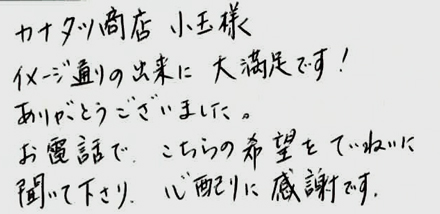 カナタツ商店 小玉様
イメージ通りの出来に 大満足です!
ありがとうございました。
お電話で、こちらの希望をていねいに
聞いて下さり、心配りに感謝です。